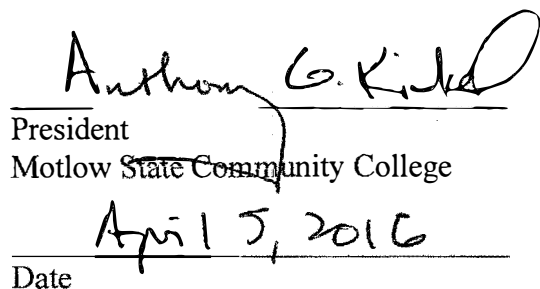 Anthony G. Kinkel
President
Motlow State Community College
April 5, 2016
Date